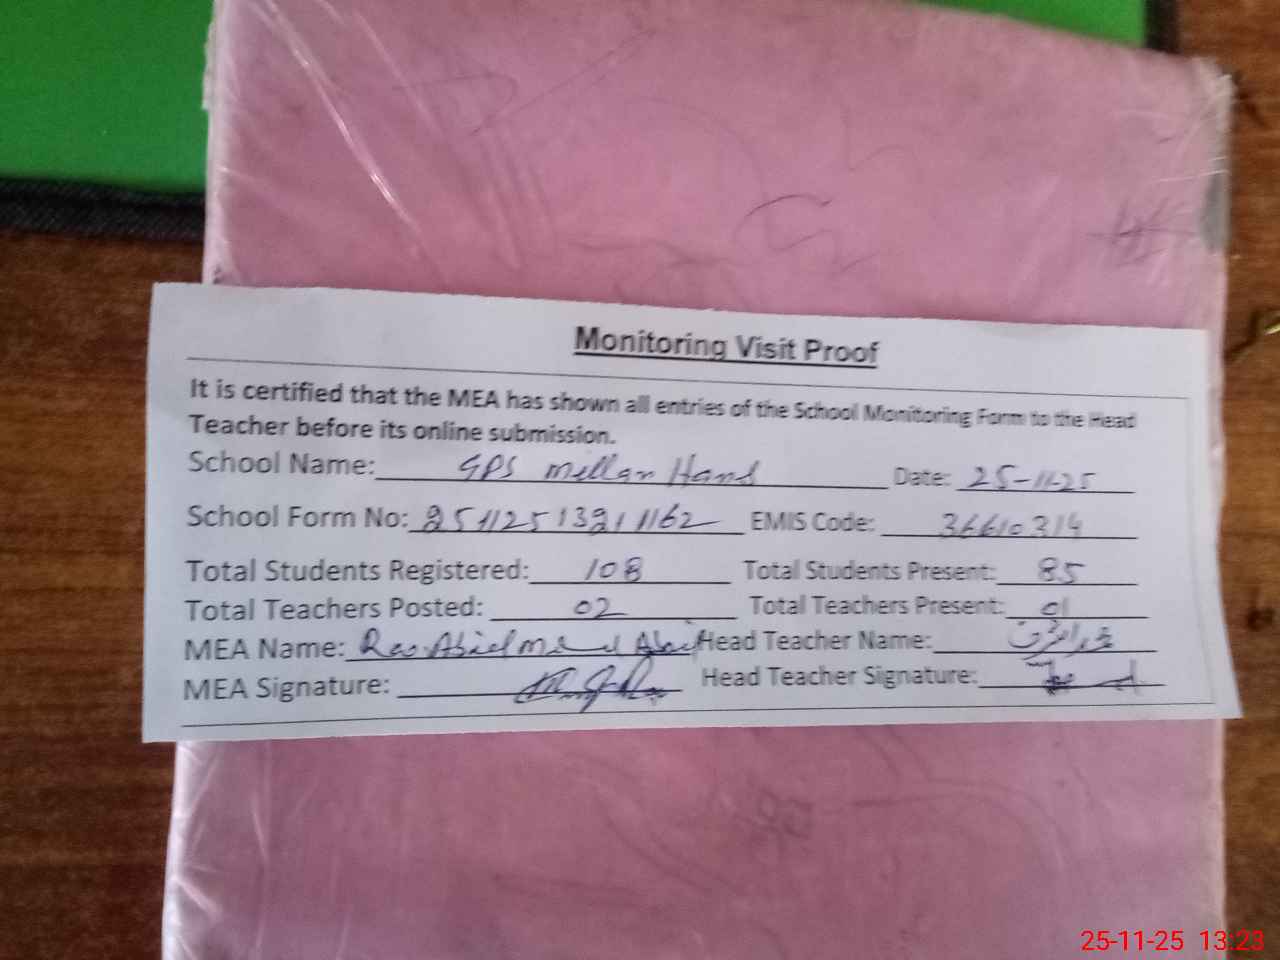 Monitoring Visit Proof
It is certified that the MEA has shown all entries of the School Monitoring Form to the Head
Teacher before its online submission.
School Name: GPS Mellan Hand Date: 25-11-25
School Form No: 25112513211162 EMIS Code: 36610314
Total Students Registered: 108 Total Students Present: 85
Total Teachers Posted: 02 Total Teachers Present: 01
MEA Name: Rao Head Teacher Name:
MEA Signature: Head Teacher Signature:
25-11-25 13:23